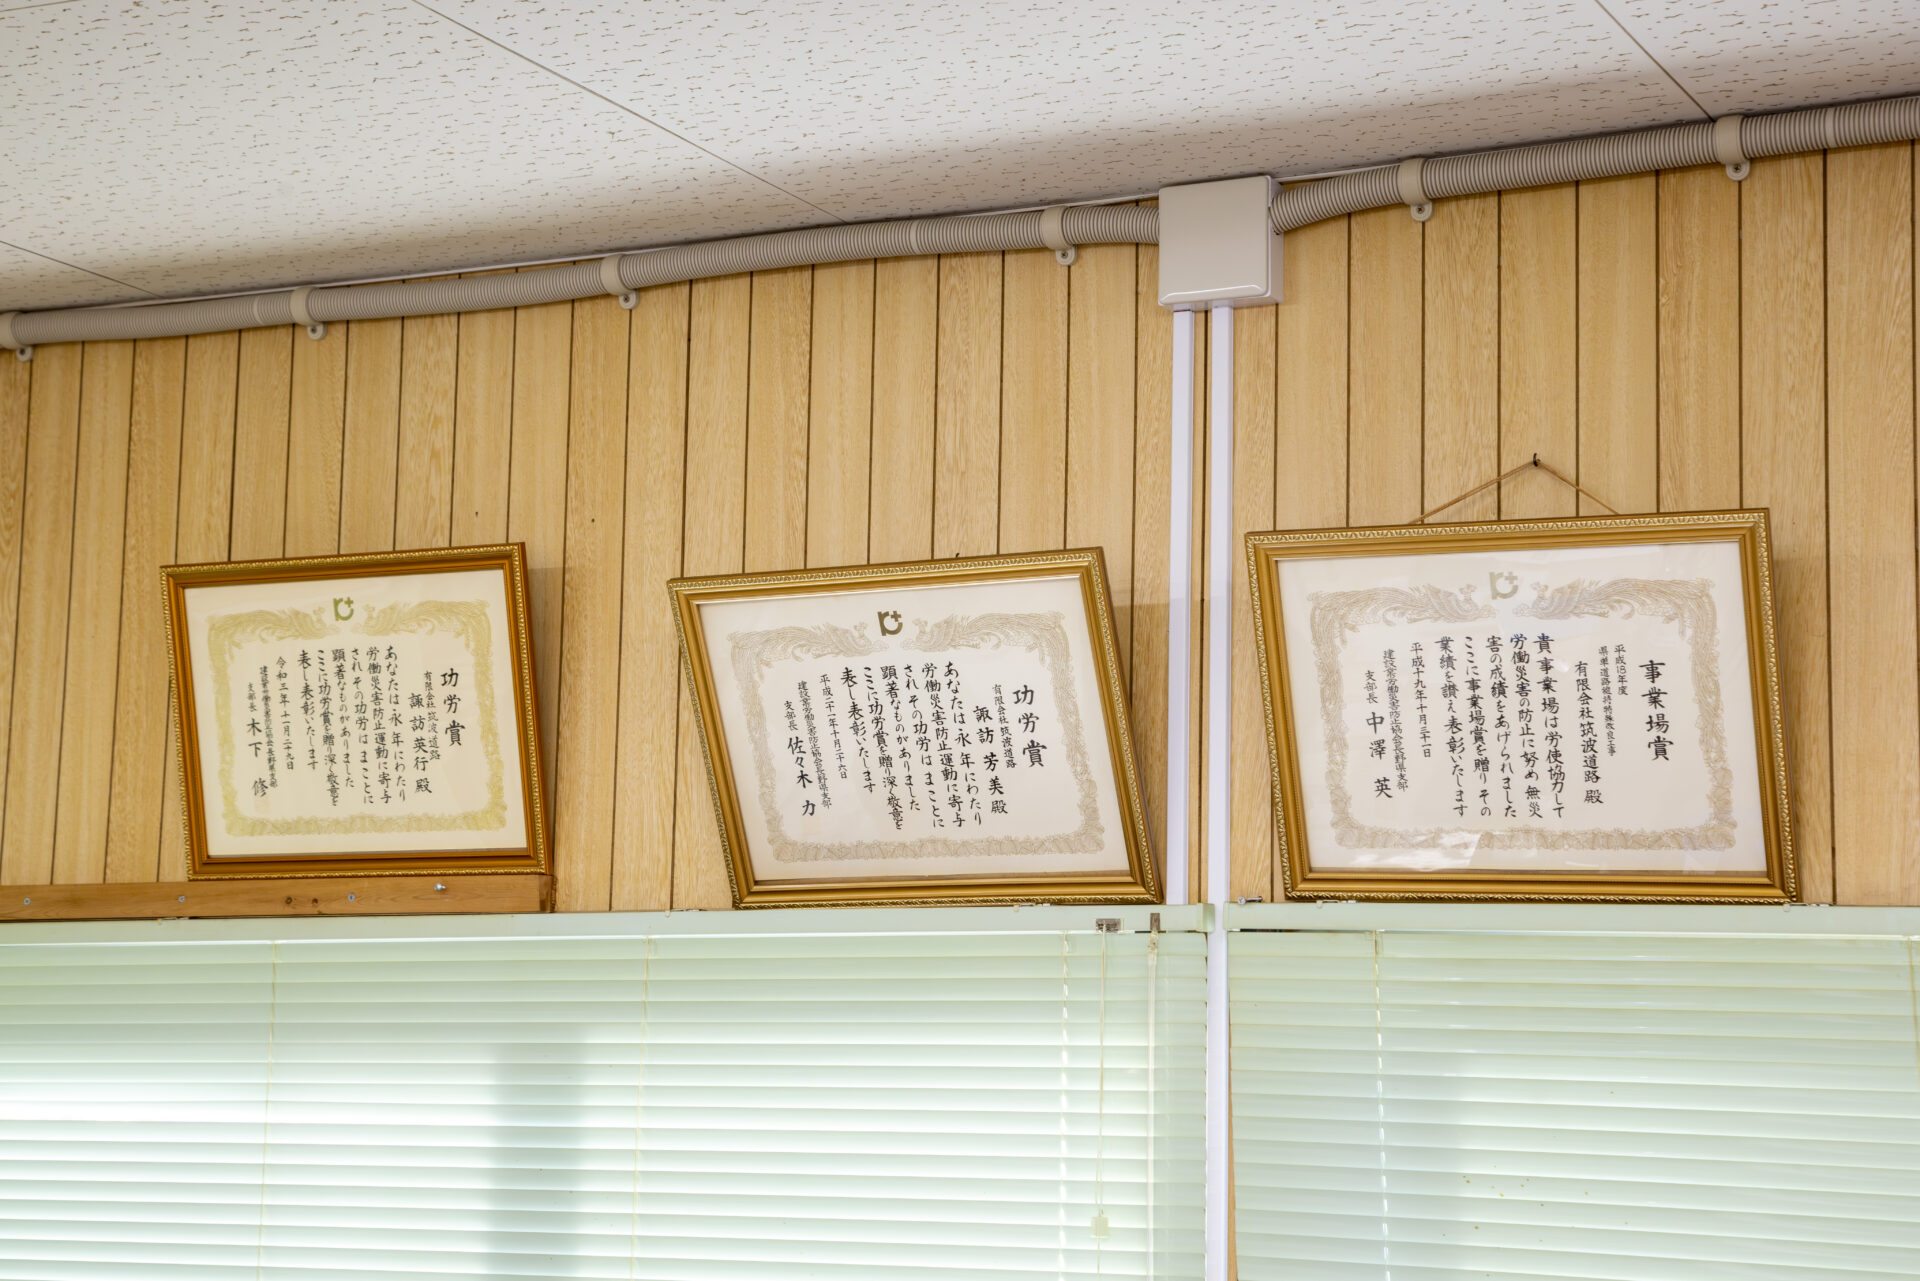 功労賞
有限会社筑波道路
諏訪英行殿
あなたは永年にわたり
労働災害防止運動に寄与
されその功労はまことに
顕著なものがありました
ここに功労賞を贈り深く敬意を
表し表彰いたします
令和三年十一月二十九日
建設業労働災害防止協会長野県支部
支部長 木下 修
功労賞
有限会社筑波道路
諏訪芳美殿
あなたは永年にわたり
労働災害防止運動に寄与
されその功労はまことに
顕著なものがありました
ここに功労賞を贈り深く敬意を
表し表彰いたします
平成二十一年十月二十六日
建設業労働災害防止協会長野県支部
支部長 佐々木 力
事業場賞
平成18年度
県単道路維持特殊改良工事
有限会社筑波道路 殿
貴事業場は労使協力して
労働災害の防止に努め無災
害の成績をあげられました
ここに事業場賞を贈りその
業績を讃え表彰いたします
平成十九年十月三十一日
建設業労働災害防止協会長野県支部
支部長 中澤 英